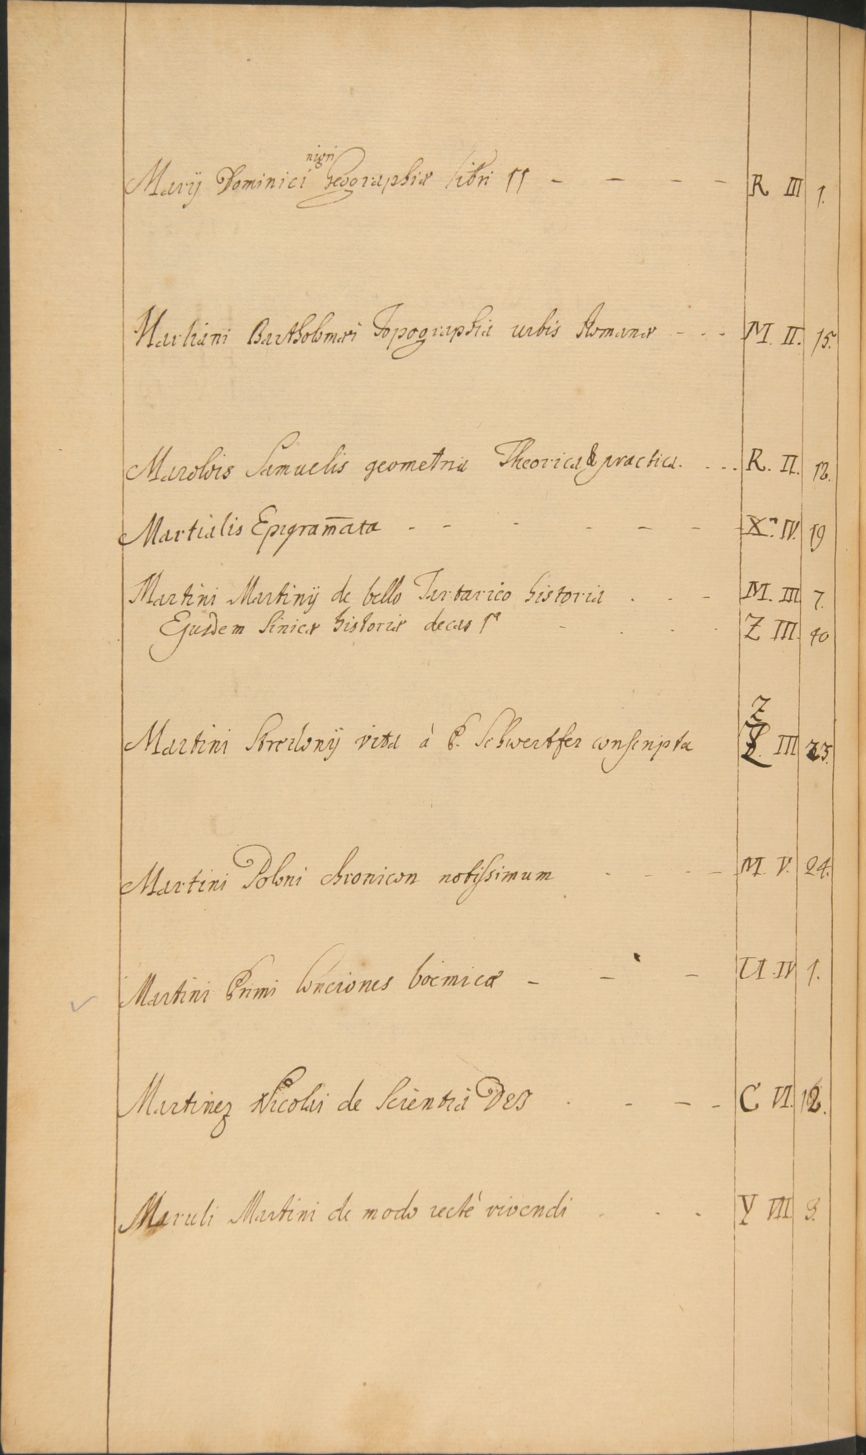 Marij Dominici nigri Geographiæ libri 11 - - - - R III 1.
Marliani Bartholomæi Topographia urbis Romanæ - - - M. II. 15.
Marolois Samuelis geometria Theorica & practica. . . . R. II. 12.
Martialis Epigram̄ata - - - - - - X. IV. 19
Martini Martinij de bello Tartarico historia . - - M. III 7.
Ejusdem Sinicæ historiæ decas 1ª - . . . Z III. 40
Martini Stredonij vita à P. Schwertfer conscripta Z III 23.
Martini Poloni chronicon notissimum . - - - M V. 24.
Martini Primi Conciones boëmicæ - - - U IV 1.
Martinez Nicolai de Scientiâ DEI . - - - C VI. 12.
Maruli Martini de modo rectè vivendi . . . Y VII 3.